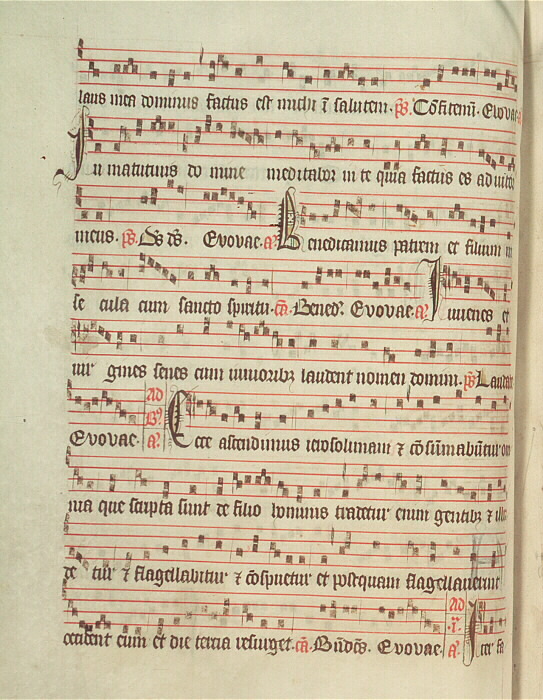 laus mea dominus factus est michi ī salutem. ps̄. Cōfitemī. Evovae. a.
In matutinis do mine meditabor in te quia factus es adiutor
meus. ps̄. Ds ds. Evovae. a. Benedicamus patrem et filium in
se cula cum sancto spiritu. cā. Bened. Evovae. a. Iuvenes et
vir gines senes cum iunioribz laudent nomen domini. ps̄. Laudate
Evovae. Ad Bs. a. Ecce ascendimus ierosolimam ⁊ cōsūmabūtur om
nia que scripta sunt de filio hominis tradetur enim gentibz ⁊ illu
de tur ⁊ flagellabitur ⁊ cōspuetur et postquam flagellaverint
occident eum et die tertia resurget. cā. Bn̄dcs. Evovae. Ad .i. a. Iter fa